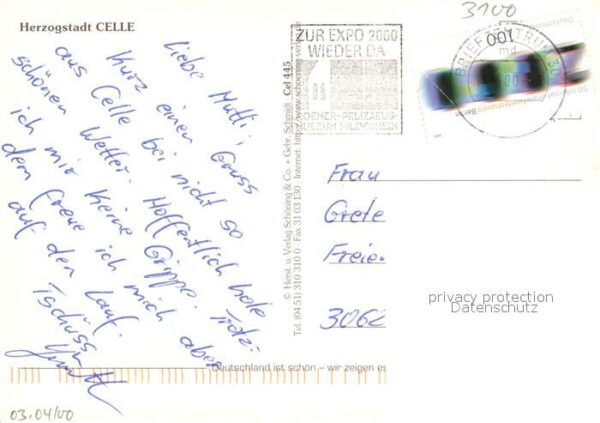 Herzogstadt CELLE
3100
ZUR EXPO 2000
WIEDER DA
ROEMER-PELIZAEUS-
MUSEUM HILDESHEIM
BRIEFZENTRUM 30
md
Liebe Mutti,
kurz einen Gruss
aus Celle bei nicht so
schönen Wetter. Hoffentlich hole
ich mir keine Grippe. Trotz-
dem freue ich mich aber
auf den Lauf.
Tschüss
© Herst. u. Verlag Schöning & Co. + Gebr. Schmidt Cel 445
Tel. (04 51) 310 310 0 · Fax 31 03 130 · Internet: http://www.schoening-verlag.de
Frau
Grete
Freie
3062
privacy protection
Datenschutz
Deutschland ist schön – wir zeigen es
03.04/00